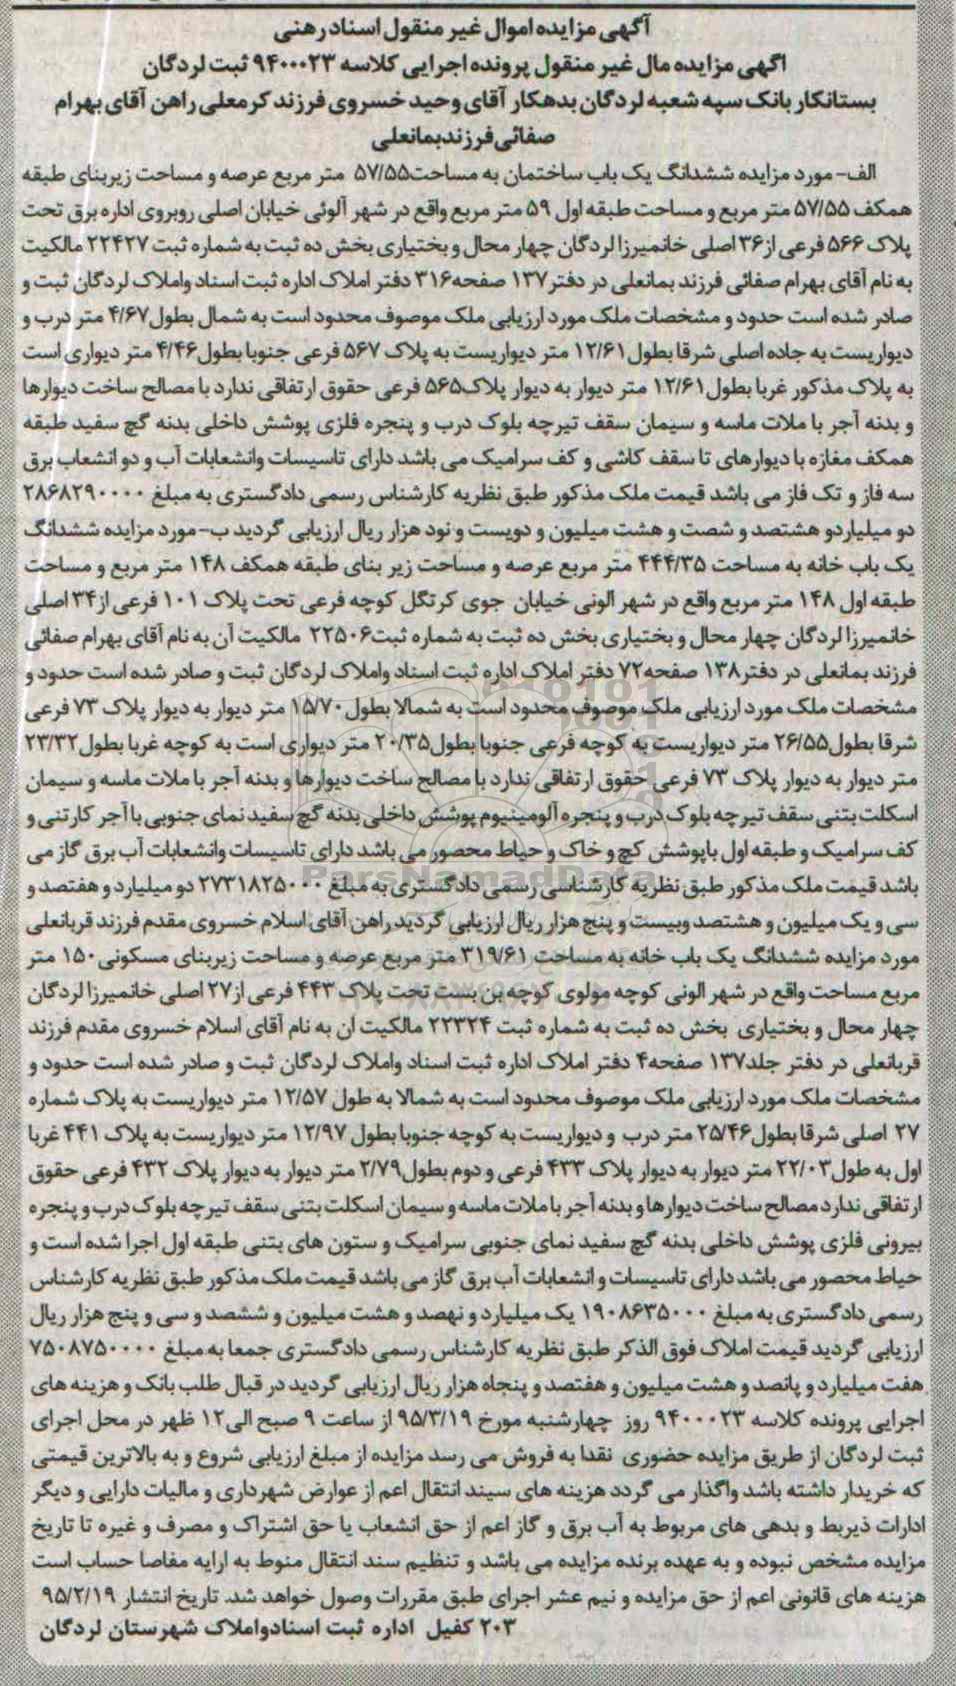 آگهی مزایده اموال غیر منقول اسناد رهنی
اگهی مزایده مال غیر منقول پرونده اجرایی کلاسه ۹۴۰۰۰۲۳ ثبت لردگان
بستانکار بانک سپه شعبه لردگان بدهکار آقای وحید خسروی فرزند کرمعلی راهن آقای بهرام
صفائی فرزند بمانعلی
الف- مورد مزایده ششدانگ یک باب ساختمان به مساحت ۵۷/۵۵ متر مربع عرصه و مساحت زیربنای طبقه
همکف ۵۷/۵۵ متر مربع و مساحت طبقه اول ۵۹ متر مربع واقع در شهر آلونی خیابان اصلی روبروی اداره برق تحت
پلاک ۵۶۶ فرعی از ۳۶ اصلی خانمیرزا لردگان چهار محال و بختیاری بخش ده ثبت به شماره ثبت ۲۲۴۲۷ مالکیت
به نام آقای بهرام صفائی فرزند بمانعلی در دفتر ۱۳۷ صفحه ۳۱۶ دفتر املاک اداره ثبت اسناد واملاک لردگان ثبت و
صادر شده است حدود و مشخصات ملک مورد ارزیابی ملک موصوف محدود است به شمال بطول ۴/۶۷ متر درب و
دیواریست به جاده اصلی شرقا بطول ۱۲/۶۱ متر دیواریست به پلاک ۵۶۷ فرعی جنوبا بطول ۴/۴۶ متر دیواری است
به پلاک مذکور غربا بطول ۱۲/۶۱ متر دیوار به دیوار پلاک ۵۶۵ فرعی حقوق ارتفاقی ندارد با مصالح ساخت دیوارها
و بدنه آجر با ملات ماسه و سیمان سقف تیرچه بلوک درب و پنجره فلزی پوشش داخلی بدنه گچ سفید طبقه
همکف مغازه با دیوارهای تا سقف کاشی و کف سرامیک می باشد دارای تاسیسات وانشعابات آب و دو انشعاب برق
سه فاز و تک فاز می باشد قیمت ملک مذکور طبق نظریه کارشناس رسمی دادگستری به مبلغ ۲۸۶۸۲۹۰۰۰۰
دو میلیاردو هشتصد و شصت و هشت میلیون و دویست و نود هزار ریال ارزیابی گردید ب- مورد مزایده ششدانگ
یک باب خانه به مساحت ۴۴۴/۳۵ متر مربع عرصه و مساحت زیر بنای طبقه همکف ۱۴۸ متر مربع و مساحت
طبقه اول ۱۴۸ متر مربع واقع در شهر الونی خیابان جوی کرتگل کوچه فرعی تحت پلاک ۱۰۱ فرعی از ۳۴ اصلی
خانمیرزا لردگان چهار محال و بختیاری بخش ده ثبت به شماره ثبت ۲۲۵۰۶ مالکیت آن به نام آقای بهرام صفائی
فرزند بمانعلی در دفتر ۱۳۸ صفحه ۷۲ دفتر املاک اداره ثبت اسناد واملاک لردگان ثبت و صادر شده است حدود و
مشخصات ملک مورد ارزیابی ملک موصوف محدود است به شمالا بطول ۱۵/۷۰ متر دیوار به دیوار پلاک ۷۳ فرعی
شرقا بطول ۲۶/۵۵ متر دیواریست به کوچه فرعی جنوبا بطول ۲۰/۳۵ متر دیواری است به کوچه غربا بطول ۲۳/۳۲
متر دیوار به دیوار پلاک ۷۳ فرعی حقوق ارتفاقی ندارد با مصالح ساخت دیوارها و بدنه آجر با ملات ماسه و سیمان
اسکلت بتنی سقف تیرچه بلوک درب و پنجره آلومینیوم پوشش داخلی بدنه گچ سفید نمای جنوبی با آجر کارتنی و
کف سرامیک و طبقه اول باپوشش کچ و خاک و حیاط محصور می باشد دارای تاسیسات وانشعابات آب برق گاز می
باشد قیمت ملک مذکور طبق نظریه کارشناسی رسمی دادگستری به مبلغ ۲۷۳۱۸۲۵۰۰۰ دو میلیارد و هفتصد و
سی و یک میلیون و هشتصد وبیست و پنج هزار ریال ارزیابی گردید راهن آقای اسلام خسروی مقدم فرزند قربانعلی
مورد مزایده ششدانگ یک باب خانه به مساحت ۳۱۹/۶۱ متر مربع عرصه و مساحت زیربنای مسکونی ۱۵۰ متر
مربع مساحت واقع در شهر الونی کوچه مولوی کوچه بن بست تحت پلاک ۴۴۳ فرعی از ۲۷ اصلی خانمیرزا لردگان
چهار محال و بختیاری بخش ده ثبت به شماره ثبت ۲۲۳۲۴ مالکیت ان به نام آقای اسلام خسروی مقدم فرزند
قربانعلی در دفتر جلد ۱۳۷ صفحه ۴ دفتر املاک اداره ثبت اسناد واملاک لردگان ثبت و صادر شده است حدود و
مشخصات ملک مورد ارزیابی ملک موصوف محدود است به شمالا به طول ۱۲/۵۷ متر دیواریست به پلاک شماره
۲۷ اصلی شرقا بطول ۲۵/۴۶ متر درب و دیواریست به کوچه جنوبا بطول ۱۲/۹۷ متر دیواریست به پلاک ۴۴۱ غربا
اول به طول ۲۲/۰۳ متر دیوار به دیوار پلاک ۴۳۳ فرعی و دوم بطول ۲/۷۹ متر دیوار به دیوار پلاک ۴۳۲ فرعی حقوق
ارتفاقی ندارد مصالح ساخت دیوارها و بدنه آجر با ملات ماسه و سیمان اسکلت بتنی سقف تیرچه بلوک درب و پنجره
بیرونی فلزی پوشش داخلی بدنه گچ سفید نمای جنوبی سرامیک و ستون های بتنی طبقه اول اجرا شده است و
حیاط محصور می باشد دارای تاسیسات و انشعابات آب برق گاز می باشد قیمت ملک مذکور طبق نظریه کارشناس
رسمی دادگستری به مبلغ ۱۹۰۸۶۳۵۰۰۰ یک میلیارد و نهصد و هشت میلیون و ششصد و سی و پنج هزار ریال
ارزیابی گردید قیمت املاک فوق الذکر طبق نظریه کارشناس رسمی دادگستری جمعا به مبلغ ۷۵۰۸۷۵۰۰۰۰
هفت میلیارد و پانصد و هشت میلیون و هفتصد و پنجاه هزار ریال ارزیابی گردید در قبال طلب بانک و هزینه های
اجرایی پرونده کلاسه ۹۴۰۰۰۲۳ روز چهارشنبه مورخ ۹۵/۳/۱۹ از ساعت ۹ صبح الی ۱۲ ظهر در محل اجرای
ثبت لردگان از طریق مزایده حضوری نقدا به فروش می رسد مزایده از مبلغ ارزیابی شروع و به بالاترین قیمتی
که خریدار داشته باشد واگذار می گردد هزینه های سیند انتقال اعم از عوارض شهرداری و مالیات دارایی و دیگر
ادارات ذیربط و بدهی های مربوط به آب برق و گاز اعم از حق انشعاب یا حق اشتراک و مصرف و غیره تا تاریخ
مزایده مشخص نبوده و به عهده برنده مزایده می باشد و تنظیم سند انتقال منوط به ارایه مفاصا حساب است
هزینه های قانونی اعم از حق مزایده و نیم عشر اجرای طبق مقررات وصول خواهد شد. تاریخ انتشار ۹۵/۲/۱۹
۲۰۳ کفیل اداره ثبت اسنادواملاک شهرستان لردگان
ParsNamadData